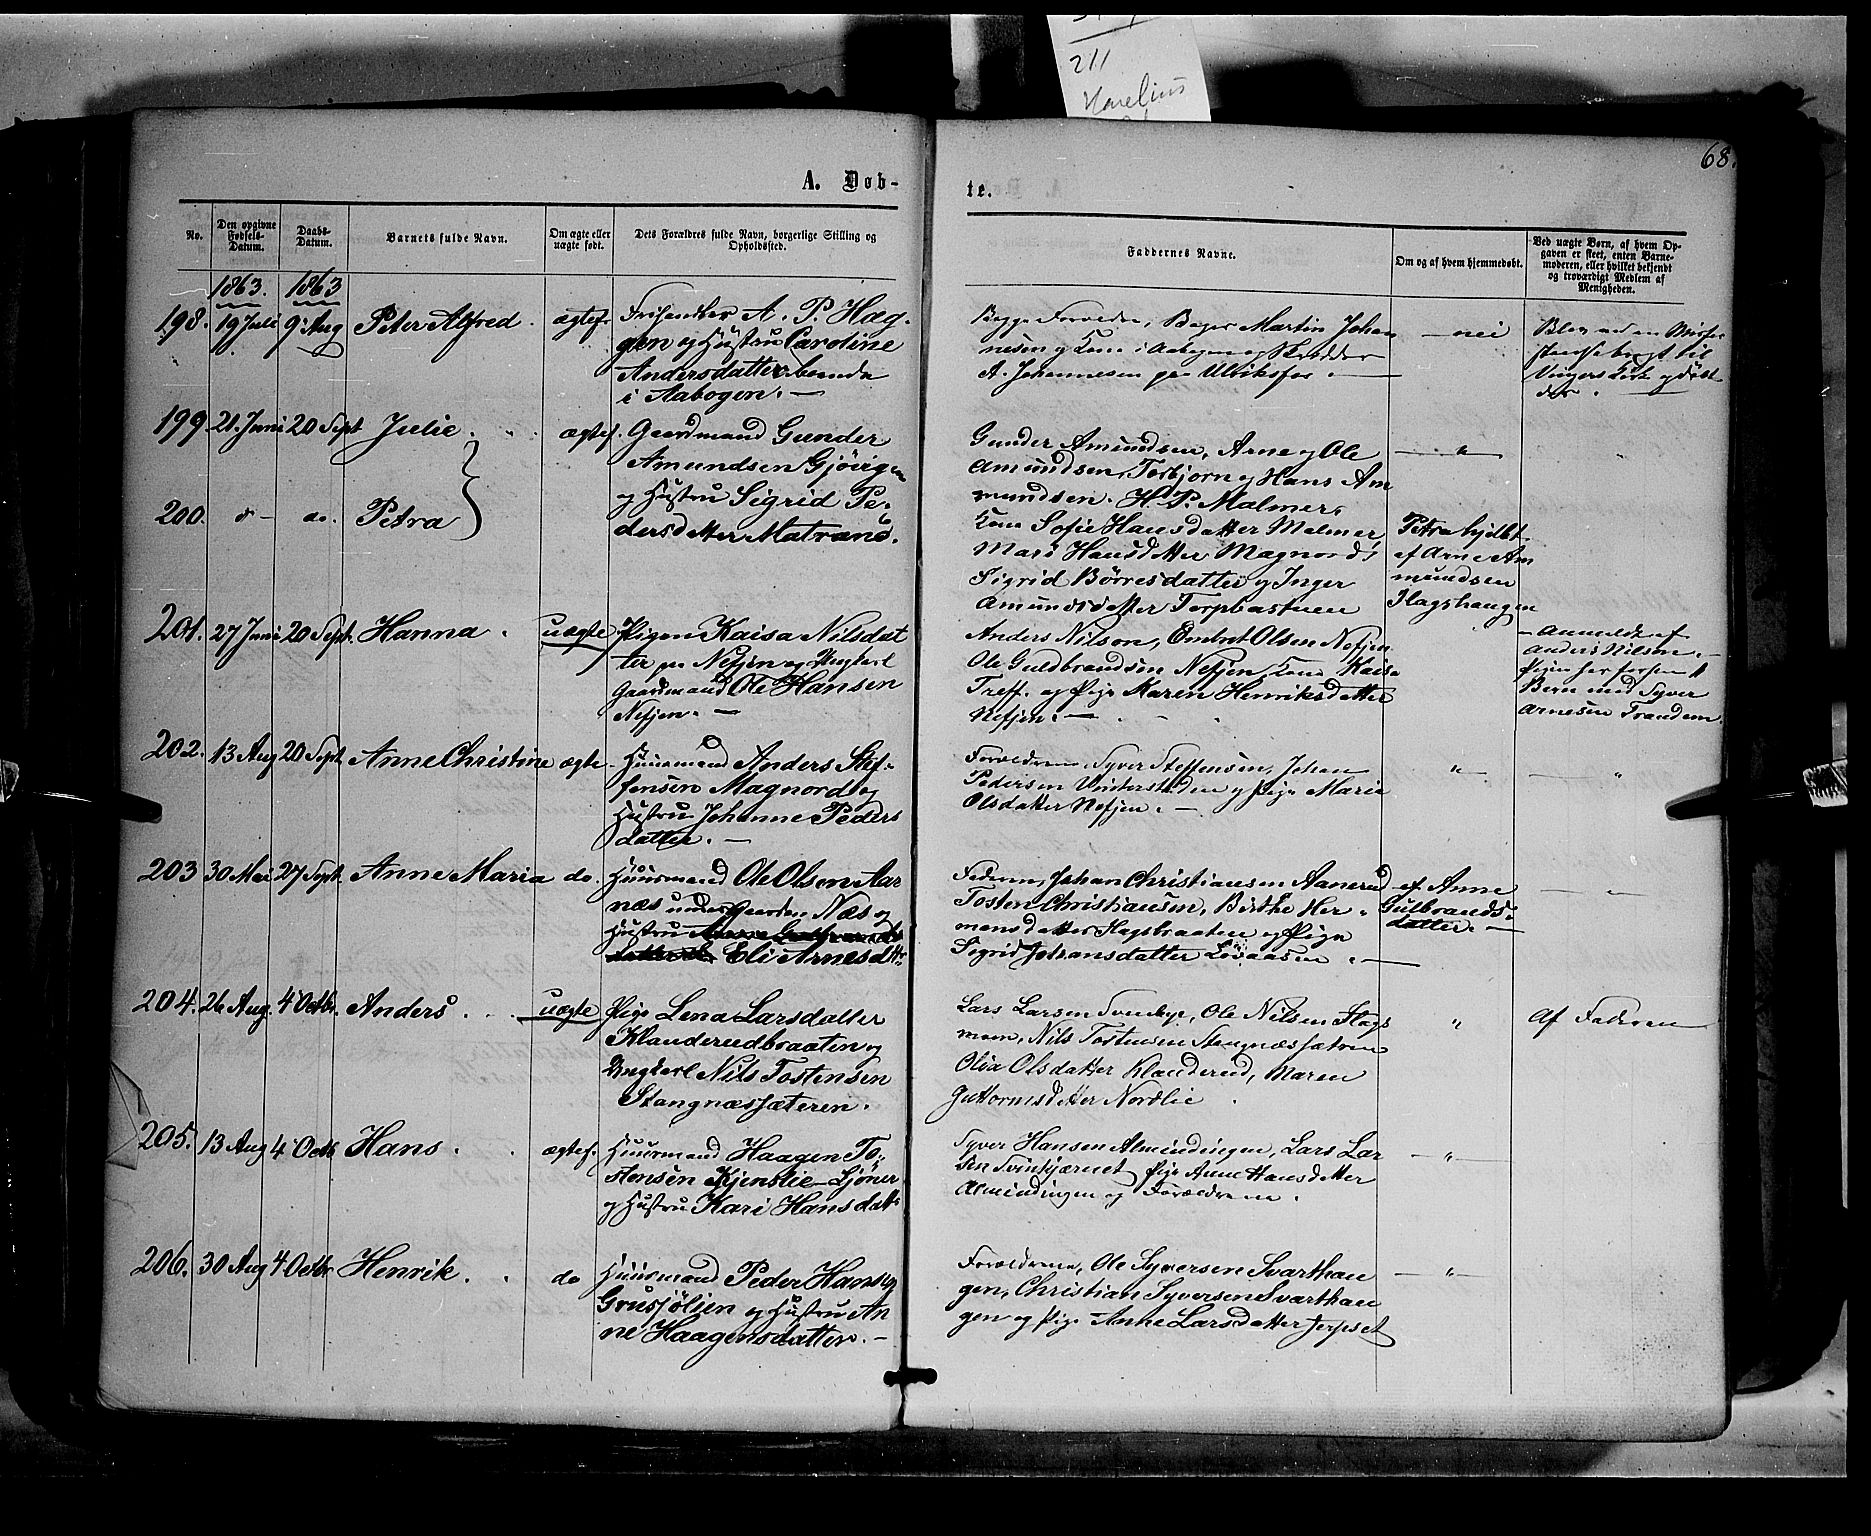 211
68.
A. Døb-
te.
No.
Den opgivne Fødsels-Datum.
Daabs-Datum.
Barnets fulde Navn.
Om ægte eller uægte født.
Dets Forældres fulde Navn, borgerlige Stilling og Opholdssted.
Faddernes Navne.
Om og af hvem hjemmedøbt.
Ved uægte Børn, af hvem Opgaven er skeet, enten Barnemoderen, eller hvilket bekjendt og troværdigt Medlem af Menigheden.
1863. 1863
198. 19 Juli 9 Aug Peter Alfred. ægtef.
A. P. Hæg-
gen og Hustru Caroline
Andersdatter
i Aabogen. —
Begge Forældre, Martin Johan
nesen og Kone i Aabogen og
A. Johannesen
— nei
199. 21. Juni 20 Sept Julie. ægtef. Gaardmand Gunder
Amundsen Gjövigen
og Hustru Sigrid Pe-
200. do. Petra
dersdatter Matrand.
Gunder Amundsen, Arne og Ole
Amundsen, Torbjorn og Hans Am
mundsen. H. P. Malmer,
Kone Sofie Hansdatter Malmer
Mari Hansdatter Magnord,
Sigrid Börresdatter og Inger
Amundsdatter Torpbastuen
— " —
Petra hjdbt.
af Arne Am
mundsen
Flagshaugen
201. 27 Juni 20 Sept. Hanna. uægte Pigen Kaisa Nilsdat
ter paa Nefjen og Ungkarl
Gaardmand Ole Hansen
Nefjen. —
Anders Nilson, Embret Olsen Nefjen
Ole Guldbrandsen Nefjen, Kone Kaisa
Treff. og Pige Karen Henriksdatter
Nefjen. —
— Anmeldt af
Anders Nilsen. —
Barn med Syver
Arnesen
202. 13 Aug 20 Sept. Anne Christine ægte. Huusmand Anders Stef-
fensen Magnord og
Hustru Johanne Peders
datter. —
Forældrene, Syver Steffensen, Johan
Pedersen og Pige Marie
Olsdatter Nefjen. —
" —
— "
203 30 Mai 27 Sept. Anne Maria do. Huusmand Ole Olsen Aar
næs under Gaarden Næs og
Hustru
Eli Arnesdtr
Faderen, Johan Christiansen Aanerud
Tosten Christiansen, Her-
mensdatter og Pige
Sigrid Johansdatter Lövaasen. —
af Anne
Gulbrands-
datter. —
— " —
204. 26 Aug. 4 Octbr. Anders. uægte Pige Lena Larsdatter
Klanderudbraaten og
Ungkarl Nils Tostensen
Stangnæssæteren.
Lars Larsen, Ole Nilsen Flags
moen, Nils Tostensen Stangnæssætren
Olia Olsdatter Klanderud, Maren
Guttormsdatter Nordlie.
"
Af Faderen
205. 13 Aug 4 Octb Hans. ægtef. Huusmand Haagen To-
stensen Kjenslie Sjöner
og Hustru Kari Hansdatt.
Syver Hansen Almindingen, Lars Lar
sen Svintjærnet Pige Anne Hansdatter
Almindingen og Forældrene.
— " —
206. 30 Aug 4 Octbr Henrik. do Huusmand Peder Hansen
Grusjölien og Hustru An
ne Haagensdatter. —
Forældrene, Ole Syversen Svarthau
gen, Christian Syversen Svarthau
gen og Pige Anne Larsdatter Jerpset
— " —